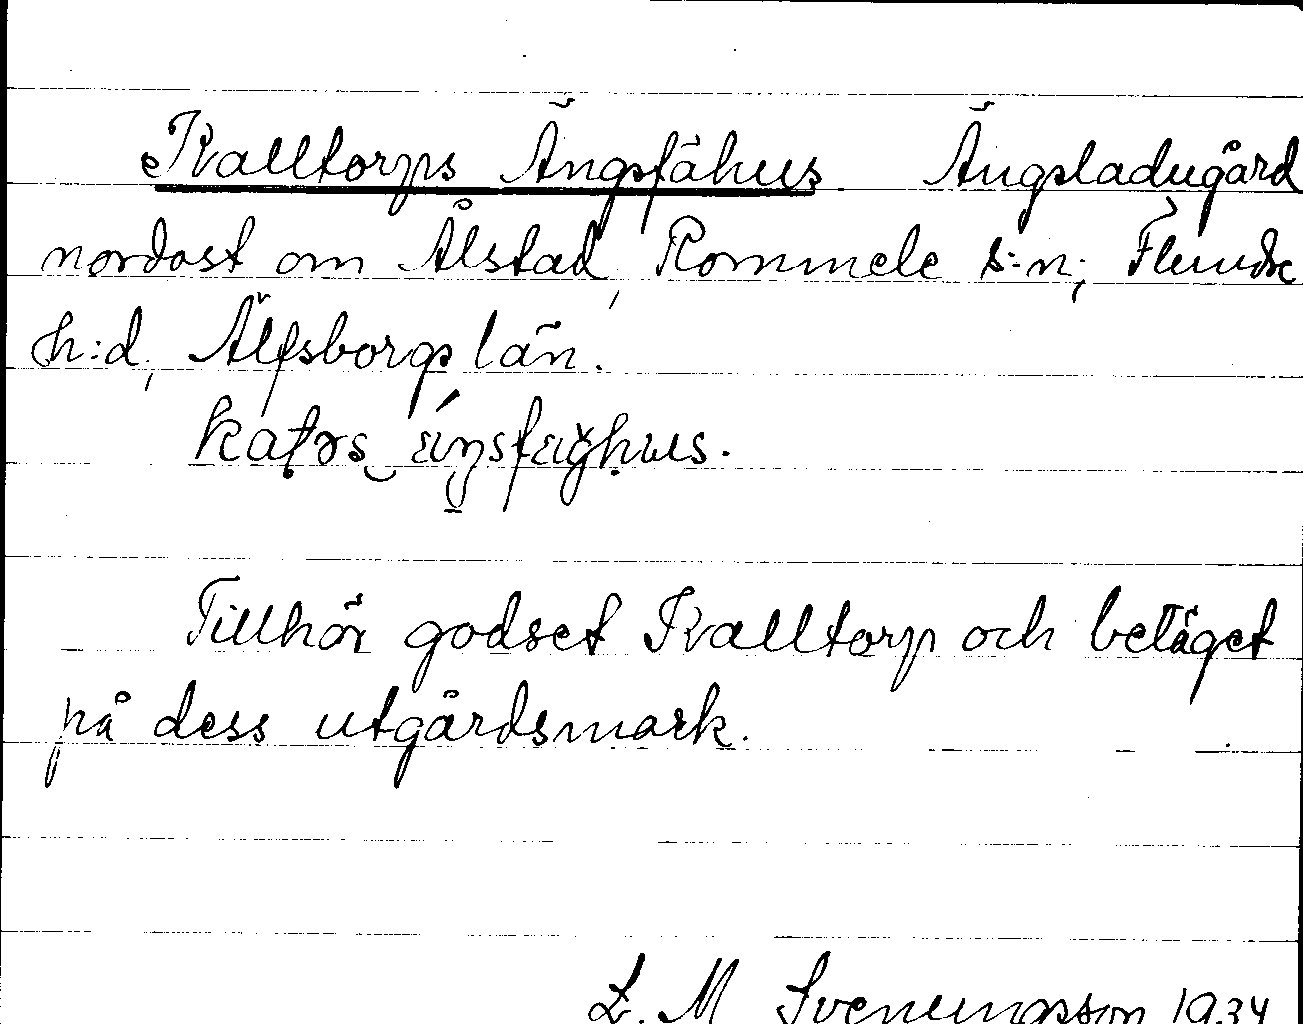 Kalltorps Ängsfähus. Ängsladugård
nordost om Ålstad, Rommele s:n; Flundre
h:d, Älfsborgs län.
Tillhör godset Kalltorp och beläget
på dess utgårdsmark.
L. M Svenungsson 1934